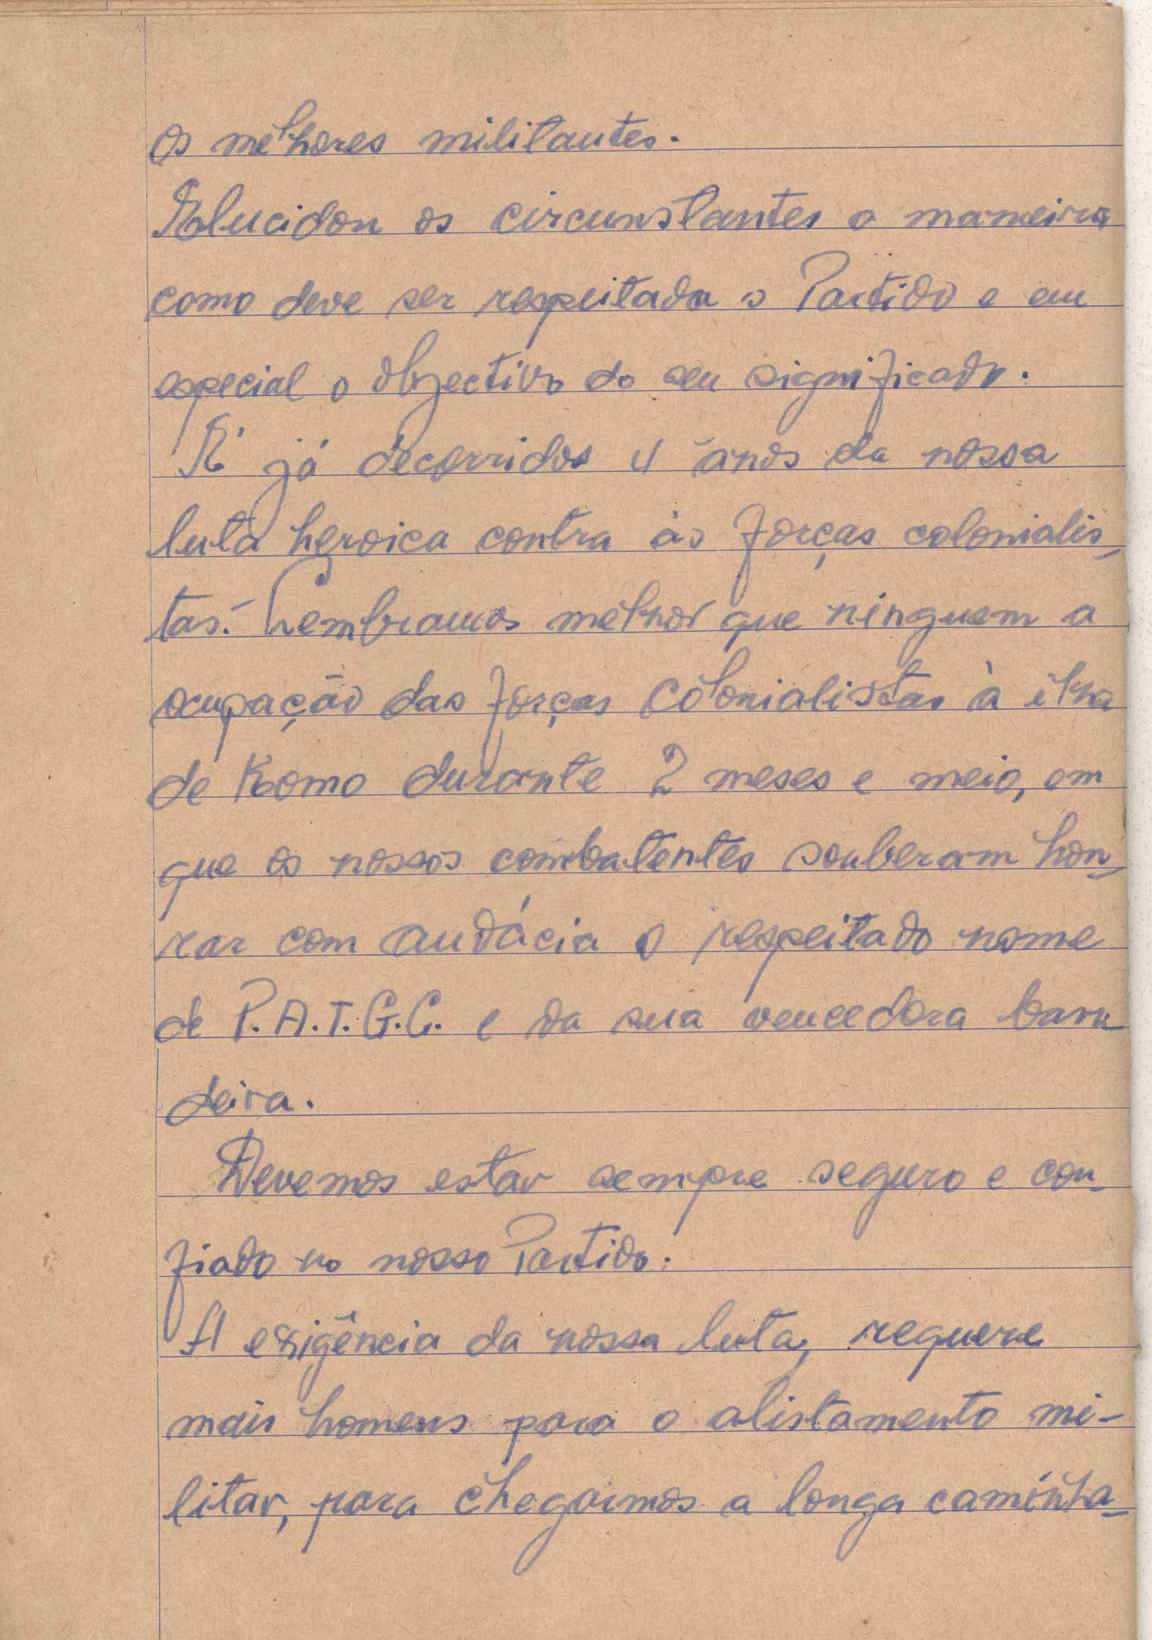 os melhores militantes.
Elucidou os circunstantes a maneira
como deve ser respeitada o Partido e em
especial o objectivo do seu significado.
É já decorridos 4 anos da nossa
luta heroica contra às forças colonialis-
tas. Lembramos melhor que ninguem a
ocupação das forças colonialistas à ilha
de Komo durante 2 meses e meio, em
que os nossos combatentes souberam hon-
rar com audácia o respeitado nome
de P.A.I.G.C. e da sua vencedora ban-
deira.
Devemos estar sempre seguro e con-
fiado no nosso Partido.
A exigência da nossa luta, requere
mais homens para o alistamento mi-
litar, para chegarmos a longa caminha-